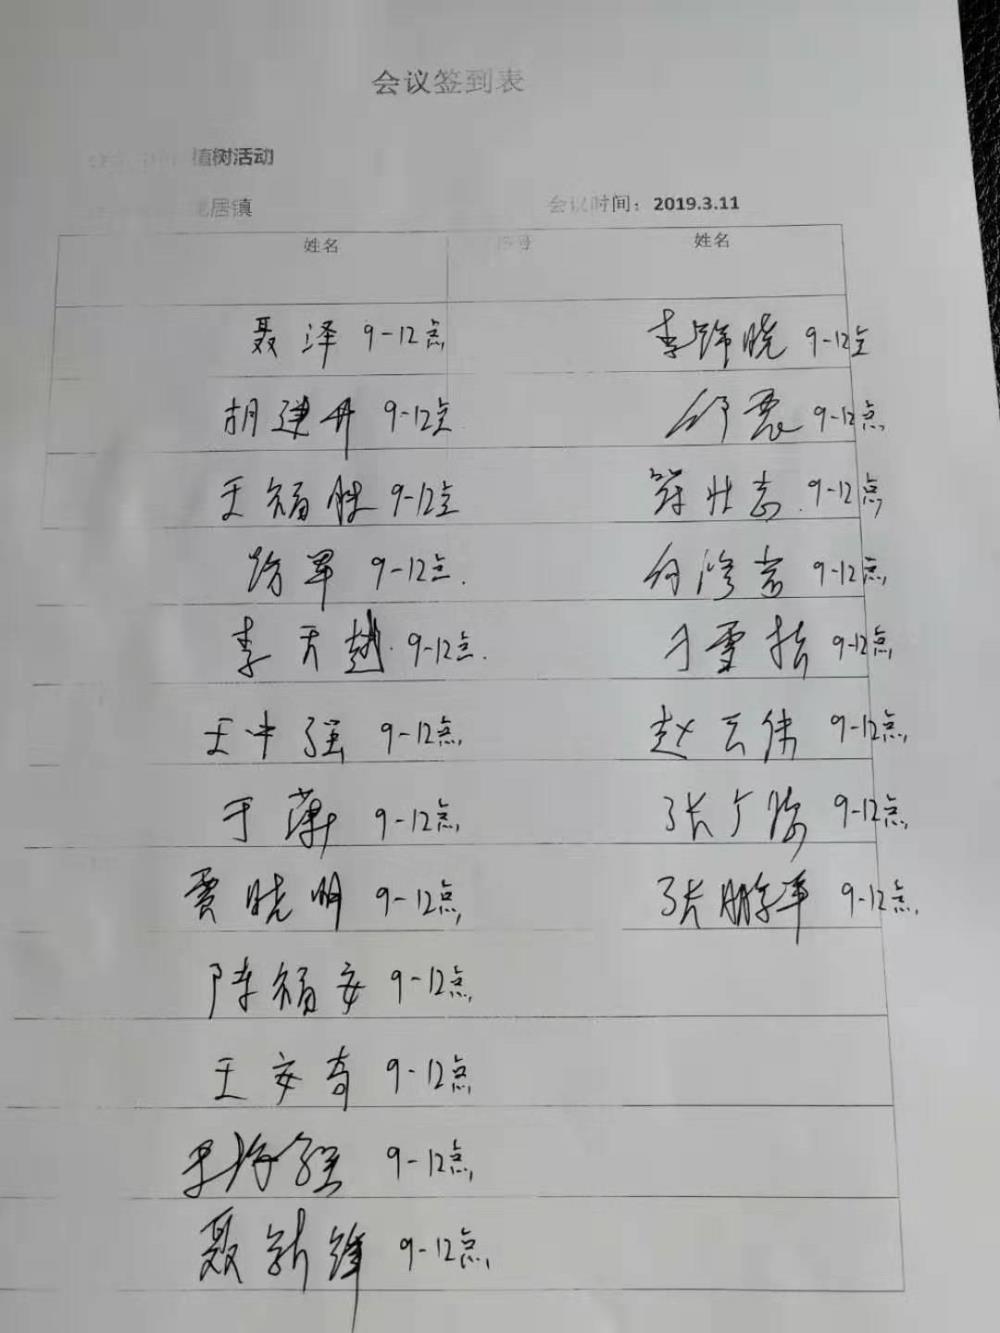 会议签到表
植树活动
龙居镇 会议时间：2019.3.11
姓名 序号 姓名
聂泽 9-12点 李锦晓 9-12点
胡建丹 9-12点 9-12点
王福胜 9-12点 薛壮志 9-12点
9-12点 何修吉 9-12点
李天越 9-12点 刁雪 9-12点
王中强 9-12点 赵云伟 9-12点
于 9-12点 张广海 9-12点
贾晓明 9-12点 张鹏 9-12点
陈福安 9-12点
王安奇 9-12点
强 9-12点
聂新锋 9-12点